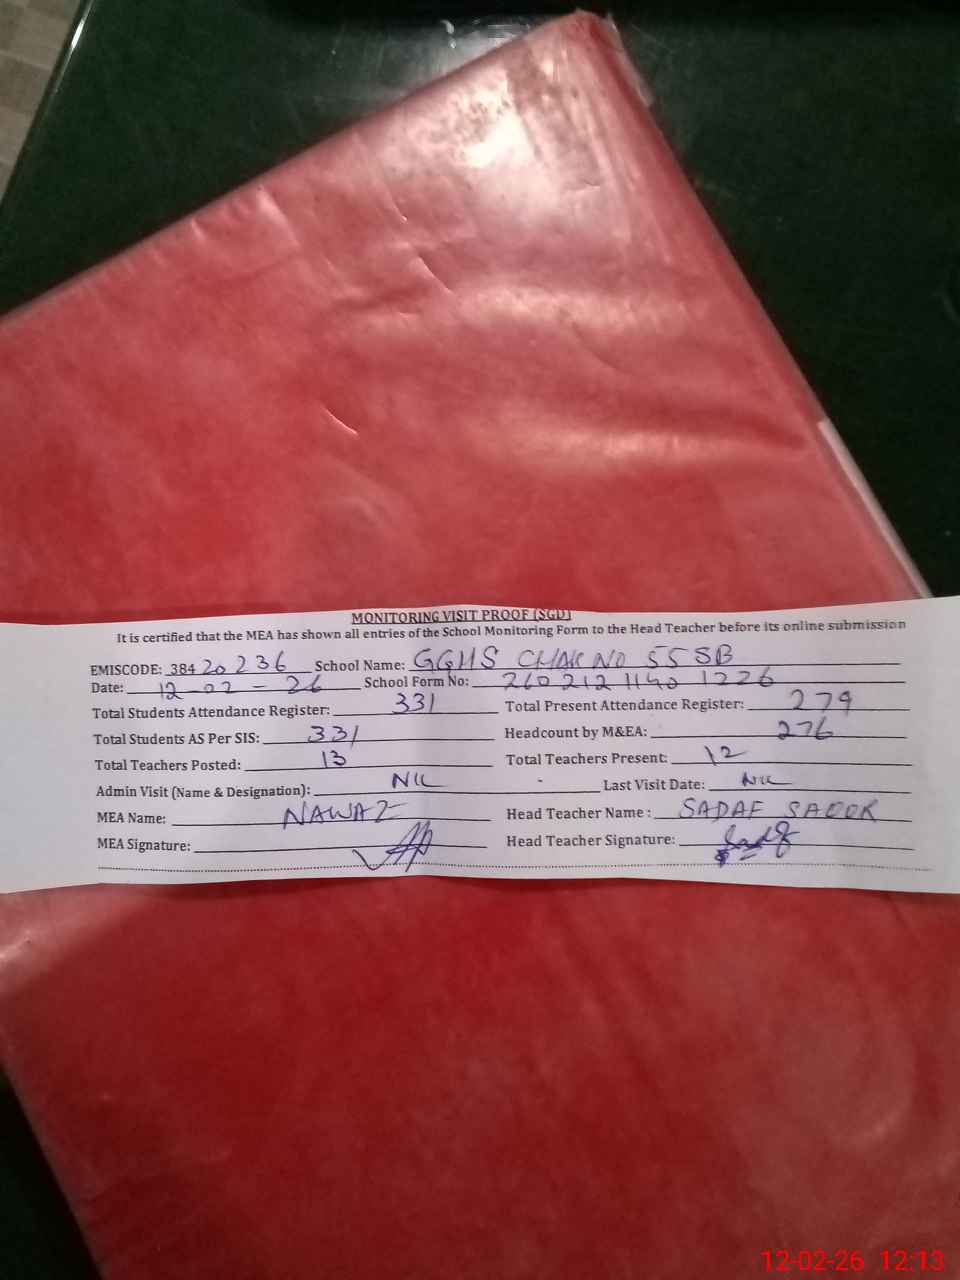 MONITORING VISIT PROOF (SGD)
It is certified that the MEA has shown all entries of the School Monitoring Form to the Head Teacher before its online submission
EMISCODE: 38420236 School Name: GGHS CHAK NO 55 SB
Date: 12-02-26 School Form No: 260212 1140 1226
Total Students Attendance Register: 331 Total Present Attendance Register: 279
Total Students AS Per SIS: 331 Headcount by M&EA: 276
Total Teachers Posted: 13 Total Teachers Present: 12
Admin Visit (Name & Designation): NIL Last Visit Date: NIL
MEA Name: NAWAZ Head Teacher Name : SADAF
MEA Signature: Head Teacher Signature:
12-02-26 12:13